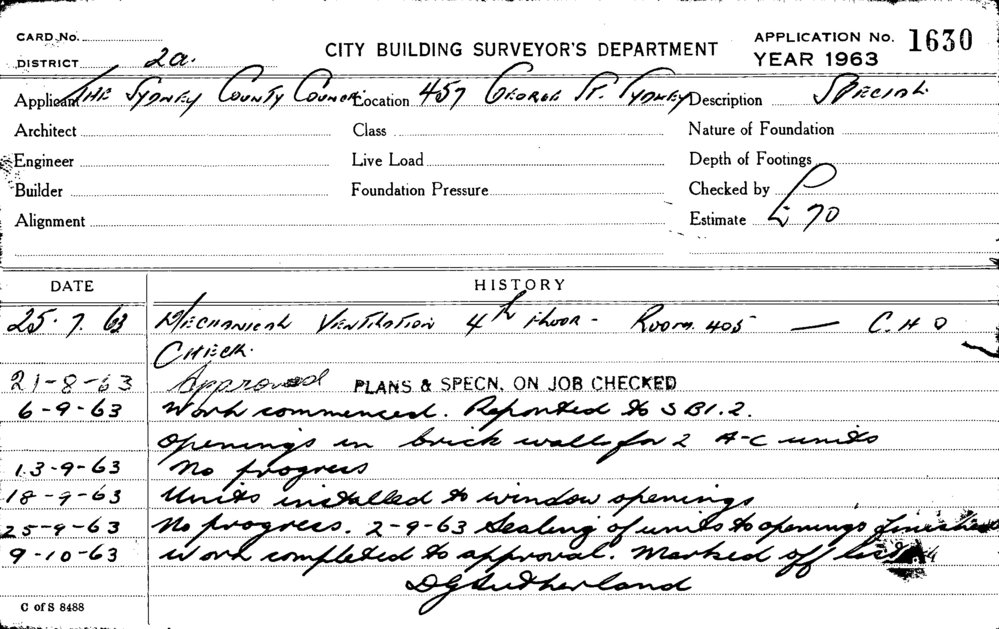 CARD No.
CITY BUILDING SURVEYOR'S DEPARTMENT
APPLICATION No. 1630
DISTRICT 2a.
YEAR 1963
Applicant THE SYDNEY COUNTY COUNCIL Location 457 GEORGE ST. SYDNEY Description SPECIAL
Architect Class Nature of Foundation
Engineer Live Load Depth of Footings
Builder Foundation Pressure Checked by
Alignment Estimate £ 70
DATE HISTORY
25.7.63 MECHANICAL VENTILATION 4th FLOOR - ROOM 405 — C.H.O
CHECK.
21-8-63 Approved PLANS & SPECN. ON JOB CHECKED
6-9-63 Work commenced. Reported to S B1.2.
openings in brick wall for 2 A-C units
13-9-63 No progress
18-9-63 Units installed to window openings
25-9-63 No progress. 2-9-63 Sealing of units to openings finished
9-10-63 work completed to approval. Marked off
DG Sutherland
C of S 8488